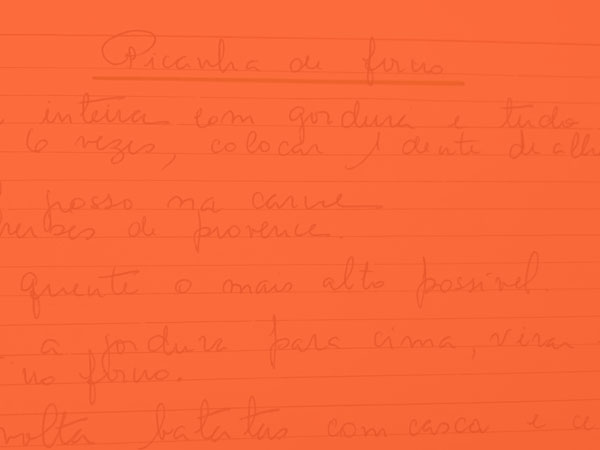 Picanha de forno
inteira com gordura e tudo
6 vezes, colocar 1 dente de alh
posso na carne
herbes de provence.
quente o mais alto possivel.
a gordura para cima, virar
no forno.
volta batatas com casca e ce